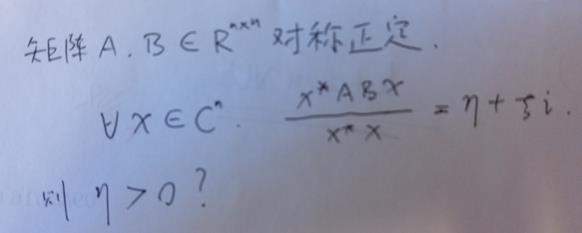 矩阵 A, B ∈ R^{n×n} 对称正定.
∀ x ∈ C^n. \frac{x^* A B x}{x^* x} = η + ξ i.
则 η > 0 ?